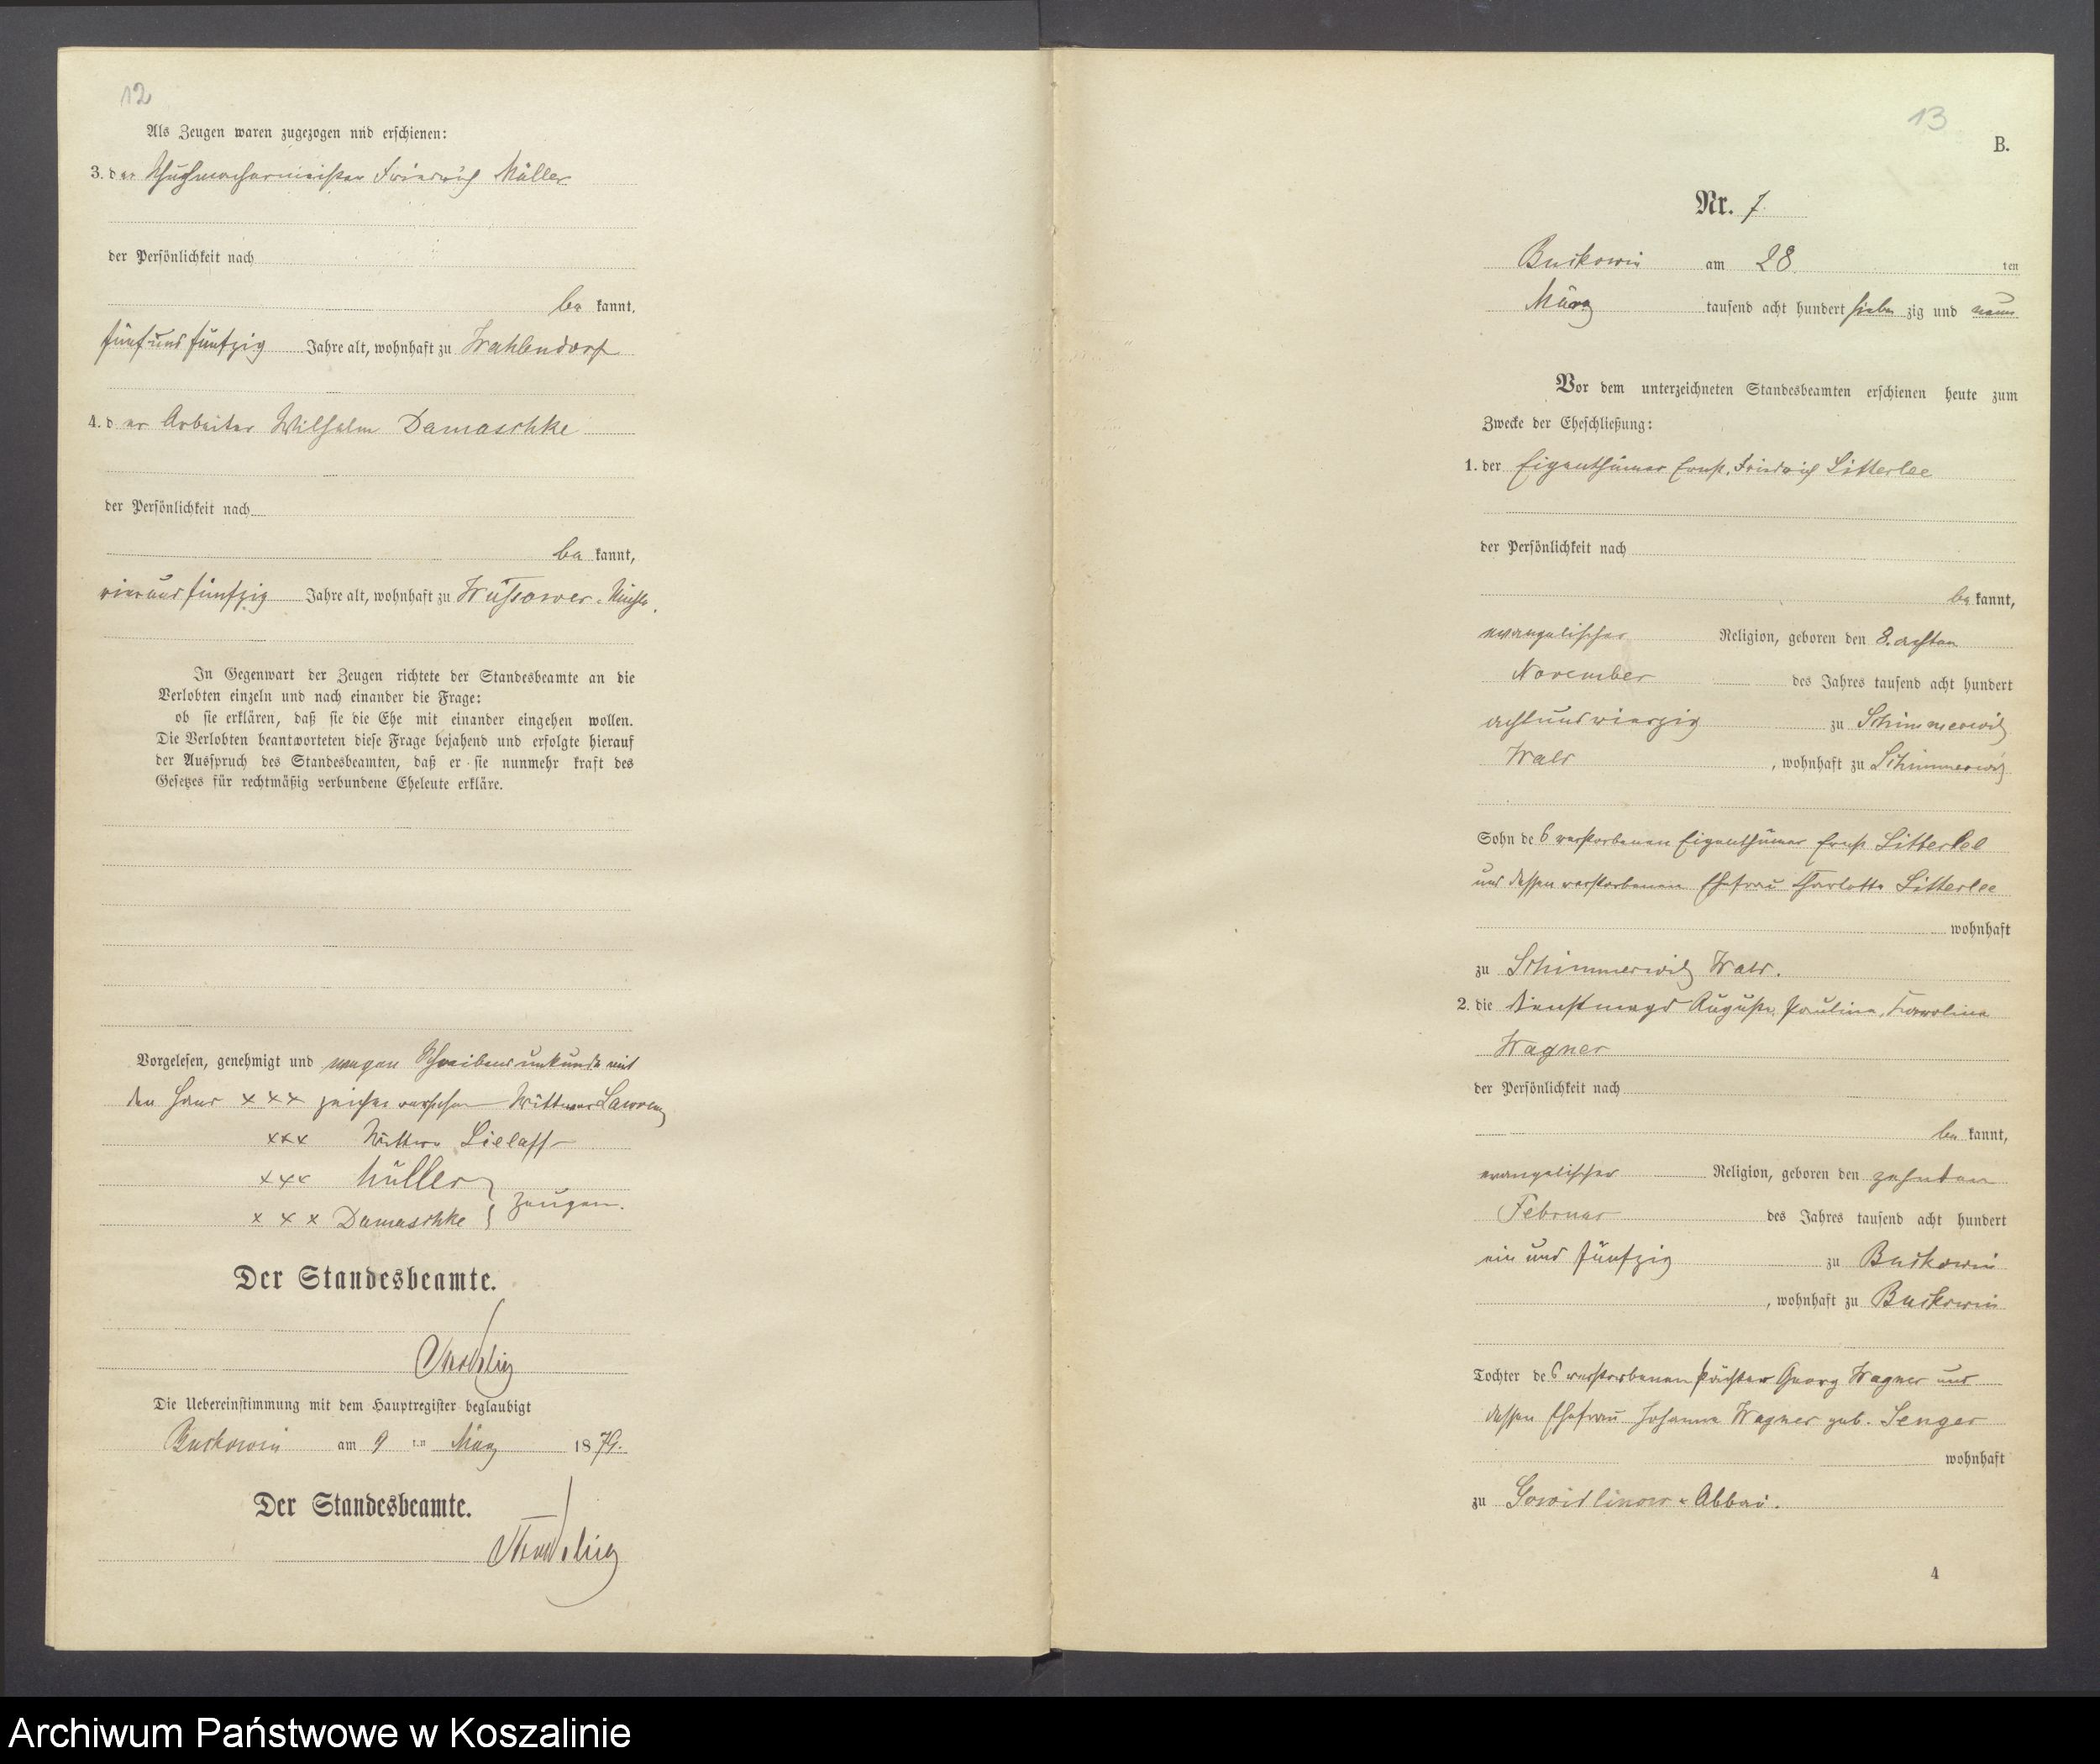 12
Als Zeugen waren zugezogen und erschienen:
3. der Schuhmachermeister Friedrich Müller
der Persönlichkeit nach
be kannt,
fünf und fünfzig Jahre alt, wohnhaft zu Wahlendorf
4. der Arbeiter Wilhelm Damaschke
der Persönlichkeit nach
be kannt,
vier und fünfzig Jahre alt, wohnhaft zu Wussower-Mühle.
In Gegenwart der Zeugen richtete der Standesbeamte an die
Verlobten einzeln und nach einander die Frage:
ob sie erklären, daß sie die Ehe mit einander eingehen wollen.
Die Verlobten beantworteten diese Frage bejahend und erfolgte hierauf
der Ausspruch des Standesbeamten, daß er sie nunmehr kraft des
Gesetzes für rechtmäßig verbundene Eheleute erkläre.
Vorgelesen, genehmigt und wegen Schreibensunkunde mit
den Hand xxx zeichen versehen Wittwer Lawrenz
xxx Wittwe Lielaff
xxx Müller
xxx Damaschke } Zeugen.
Der Standesbeamte.
Die Uebereinstimmung mit dem Hauptregister beglaubigt
Buckowin am 9 ten März 1879.
Der Standesbeamte.
13
B.
Nr. 7
Buckowin am 28 ten
März tausend acht hundert sieben zig und neun
Vor dem unterzeichneten Standesbeamten erschienen heute zum
Zwecke der Eheschließung:
1. der Eigenthümer Ernst, Friedrich Litterlee
der Persönlichkeit nach
be kannt,
evangelischer Religion, geboren den 8. achten
November des Jahres tausend acht hundert
acht und vierzig zu Schimmerwitz
Wald, wohnhaft zu Schimmerwitz
Sohn des verstorbenen Eigenthümer Ernst Litterlee
und dessen verstorbenen Ehefrau Charlotte Litterlee
wohnhaft
zu Schimmerwitz Wald.
2. die Dienstmagd Auguste, Pauline, Karoline
Wagner
der Persönlichkeit nach
be kannt,
evangelischer Religion, geboren den zehnten
Februar des Jahres tausend acht hundert
ein und fünfzig zu Buckowin
, wohnhaft zu Buckowin
Tochter des verstorbenen Pächter Georg Wagner und
dessen Ehefrau Johanna Wagner geb. Senger
wohnhaft
zu Gowidlinow - Abbau.
4
Archiwum Państwowe w Koszalinie